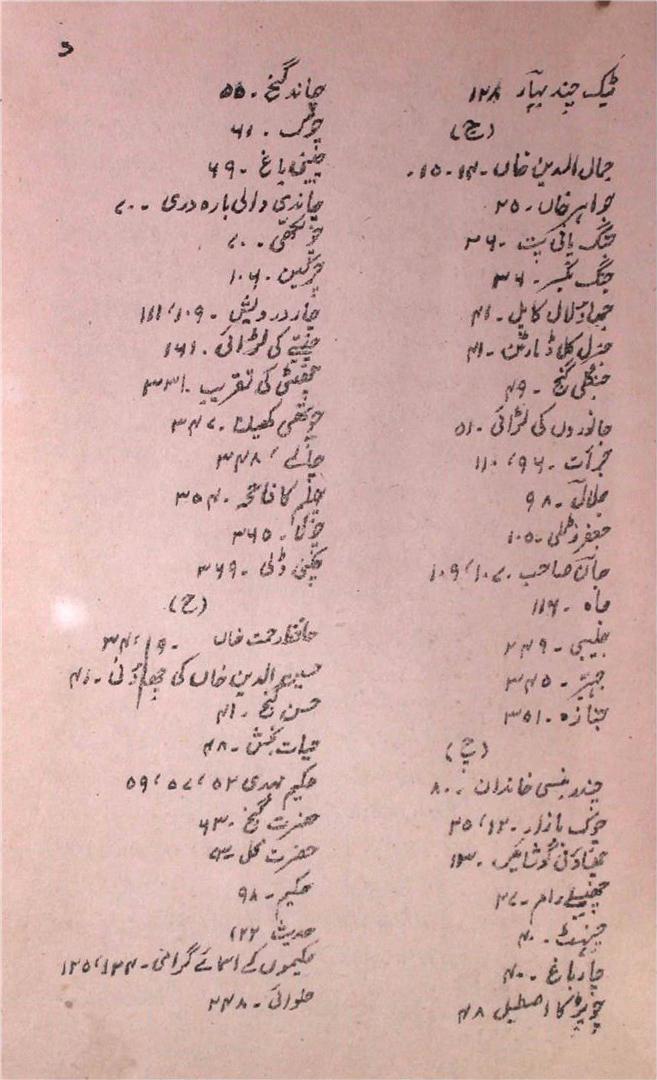 د
ٹیک چند بہار ۱۲۸
(ج)
جمال الدین خاں ۔ ۱۴ ۔ ۱۵۔
جواہر خاں ۔ ۲۵
جنگ پانی پت ۔ ۳۶
جنگ بکسر ۔ ۳۶
۔ ۴۱
جنرل کلاڈ مارٹن ۔ ۴۱
جنگلی گنج ۔ ۴۹
جانوروں کی لڑائی ۔ ۵۱
جرأت ۔ ۹۶، ۱۱۰
جلال ۔ ۹۸
جعفر زٹلی ۔ ۱۰۵
جان صاحب ۔ ۱۰۷، ۱۰۹
جاہ ۔ ۱۱۶
جلیبی ۔ ۲۴۹
جہیز ۔ ۳۴۵
جنازہ ۔ ۳۵۱
(چ)
چندر بنسی خاندان ۔ ۸۰
چوک بازار ۔ ۱۲، ۲۵
چھاؤنی ۔ ۱۳
رام ۔ ۲۷
چنہٹ ۔ ۴۰
چار باغ ۔ ۴۰
اصطبل ۴۸
چاند گنج ۔ ۵۵
چوک ۔ ۶۱
چینی باغ ۔ ۶۹
چاندی والی بارہ دری ۔ ۷۰
چولکھی ۔ ۷۰
چرکین ۔ ۱۰۶
چار درویش ۔ ۱۰۹، ۱۱۱
چیتے کی لڑائی ۔ ۱۶۱
چھٹی کی تقریب ۔ ۳۳۱
چوتھی کھیلنا ۔ ۳۴۷
چالے، ۳۴۸
چہلم کا فاتحہ ۔ ۳۵۴
چوگا ۔ ۳۶۵
چکنی ڈلی ۔ ۳۶۹
(ح)
حافظ رحمت خاں ۔ ۱۹، ۳۴
الدین خاں کی چھاؤنی ۔ ۴۱
حسن گنج ۔ ۴۱
حیات بخش ۔ ۴۸
حکیم مہدی ۵۲، ۵۷، ۵۹
حضرت گنج ۔ ۶۳
حضرت محل ۔
حکیم ۔ ۹۸
حدیث ۱۲۲
حکیموں کے اسمائے گرامی ۔ ۱۲۴، ۱۲۵
حلوائی ۔ ۲۴۸